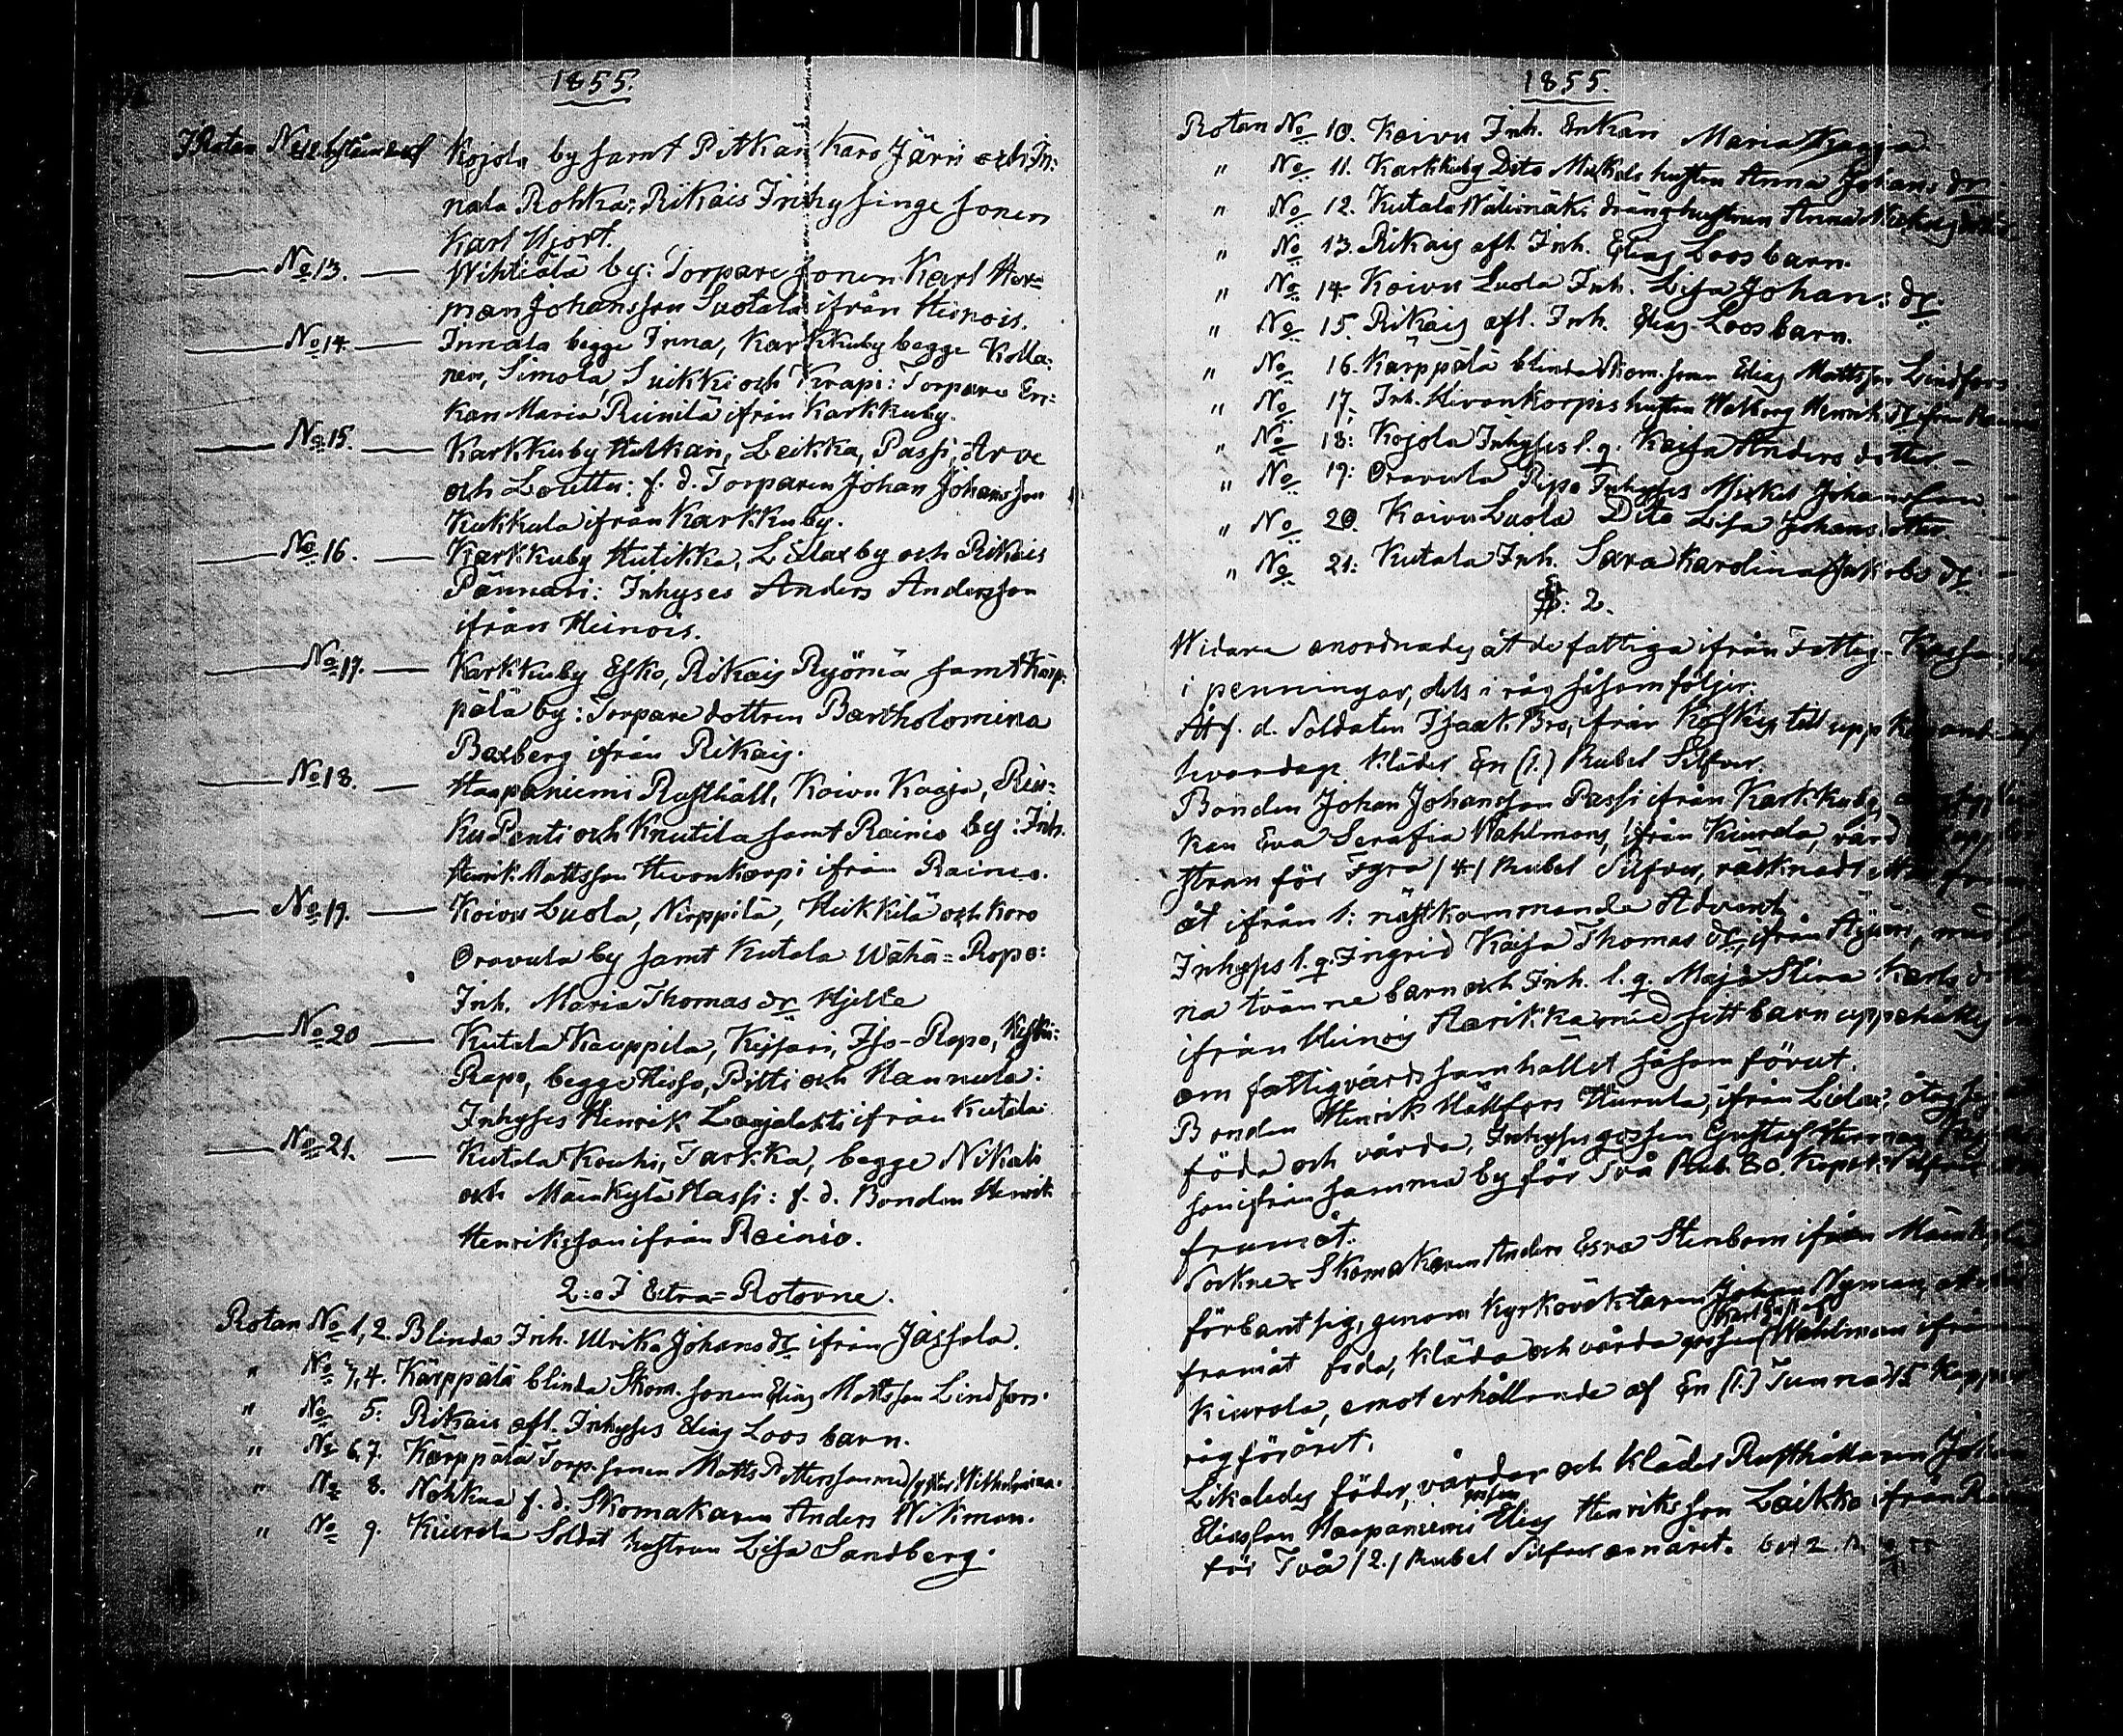 1855.
I Rotan No 12 bestående af Kojola by samt Pitkän Karo Järvi och In:
nala Rohka: Rikais Inhysinge sonen
Karl Hjort.
No 13. Wihtiälä by: Torpare sonen Karl Her=
man Johansson Suotala ifrån Heinois.
No 14. Innala begge Inna, Karkkuby begge Kolla:
nen, Simola, Suikki och Krapi: Torpare En:
kan Maria Reinilä ifrån Karkkuby.
No 15. Karkkuby Hulkari, Leikka, Passi, Arve
och Louttu: f. d. Torparen Johan Johansson
Kukkula ifrån Karkkuby.
No 16. Karkkuby Hutikka, Lielaxby och Rikais
Pännäri: Inhyses Anders Andersson
ifrån Heinois.
No 17. Karkkuby Esko, Rikais Ryömä samt Kärp:
pälä by: Torpare dottren Bartholomina
Boxberg ifrån Rikais.
No 18. Haapaniemi Rusthåll, Koivu Kagja, Rien:
ku Penti och Knutila samt Rainio by: Inh.
Henrik Mattsson Hevonkorpi ifrån Rainio.
No 19. Koivu Luola, Nirppilä, Heikkilä och Koro
Oravula by samt Kutala Wähä=Ropo:
Inh. Maria Thomas dr Hjelte
No 20 Kutala Kauppila, Keisari, Iso-Ropo, Keski:
Ropo, begge Hissa, Pitti och Hannula:
Inhyses Henrik Laajalahti ifrån Kutala
No 21. Kutala Kouhi, Tarkka, begge Nikali
och Mäenkylä Hassi: f. d. Bonden Henrik
Henriksson ifrån Rainio.
2:o I Extra=Rotorne.
Rotan No 1, 2. Blinda Inh. Ulrika Johans dr ifrån Jässala.
" No 3, 4. Kärppälä blinda Skom. sonen Elias Mattsson Lindfors.
" No 5: Rikais afl. Inhyses Elias Loos barn.
" No 6, 7. Kärppälä Torp. sonen Matts Pettersson med syster Wilhelmina.
" No 8. Nohkua f. d. Skomakaren Anders Wikman.
" No 9. Kiurala Soldat hustrun Lisa Sandberg.
1855.
Rotan No 10. Koivu Inh. Enkan Maria Kagja
" No 11. Karkkuby Dito Mickels hustru Anna Johans dr
" No 12. Kutala Wälimäki dräng hustrun Anna
" No 13. Rikais afl. Inh. Elias Loos barn.
" No 14. Koivu Luola Inh. Lisa Johan: dr.
" No 15. Rikais afl. Inh. Elias Loos barn.
" No 16. Kärppälä blinda Skom. sonen Elias Mattsson Lindfors
" No 17. Inh. Hevonkorpis hustru Walborg Henrik dr ifrån Rainio
" No 18: Kojola Inhyses l. q. Kaisa Anders dotter -
" No 19: Oravula Ropo Inhyses Mickel Johansson -
" No 20. Koivu Luola Dito Lisa Johans dotter. -
" No 21: Kutala Inh. Sara Karolina Jakobs dr -
§: 2.
Widare anordnades åt de fattiga ifrån Fattig-Kassan,
i penningar, dels i råg såsom följer:
Åt f. d. Soldaten Isaak Bro, ifrån Koskis, till upp
hvardags kläder En (1.) Rubel Silfver.
Bonden Johan Johansson Passi ifrån Karkkuby,
kan Eva Serafia Wahlmans, ifrån Kiurala, vård
stran för Fyra /4./ Rubel Silfver, räknadt
åt ifrån 1: nästkommande Advent.
Inhyses l. q. Ingrid Kaisa Thomas dr, ifrån Äijäri, med
na tvänne barn och Inh. l. q. Maja Stina Karls dotter
ifrån Heinois Aarikka med sitt barn uppehålles
om fattigvårds samhället såsom förut.
Bonden Henrik Hällfors Hurula, ifrån Lielax, åtog sig
föda och vårda, Inhyses gossen Gustaf Herman
son ifrån samma by för Två Rub. 80. Kopek Silfver
framåt.
Sockne-Skomakaren Anders Esra Stenbom ifrån Mäenkylä
förbant sig, genom Kyrkoväktaren Johan Nyman, att
framåt föda, kläda och vårda gossen Karl Gustaf Wahlman ifrån
Kiurala, emot erhållande af En (1.) Tunna 15 Kappar
råg för året.
Likaledes föder, vårdar och kläder Rusthållaren Johan
Eliasson Haapaniemi gossen Elias Henriksson Laikko ifrån
för Två /2./ Rubel Silfver om året.